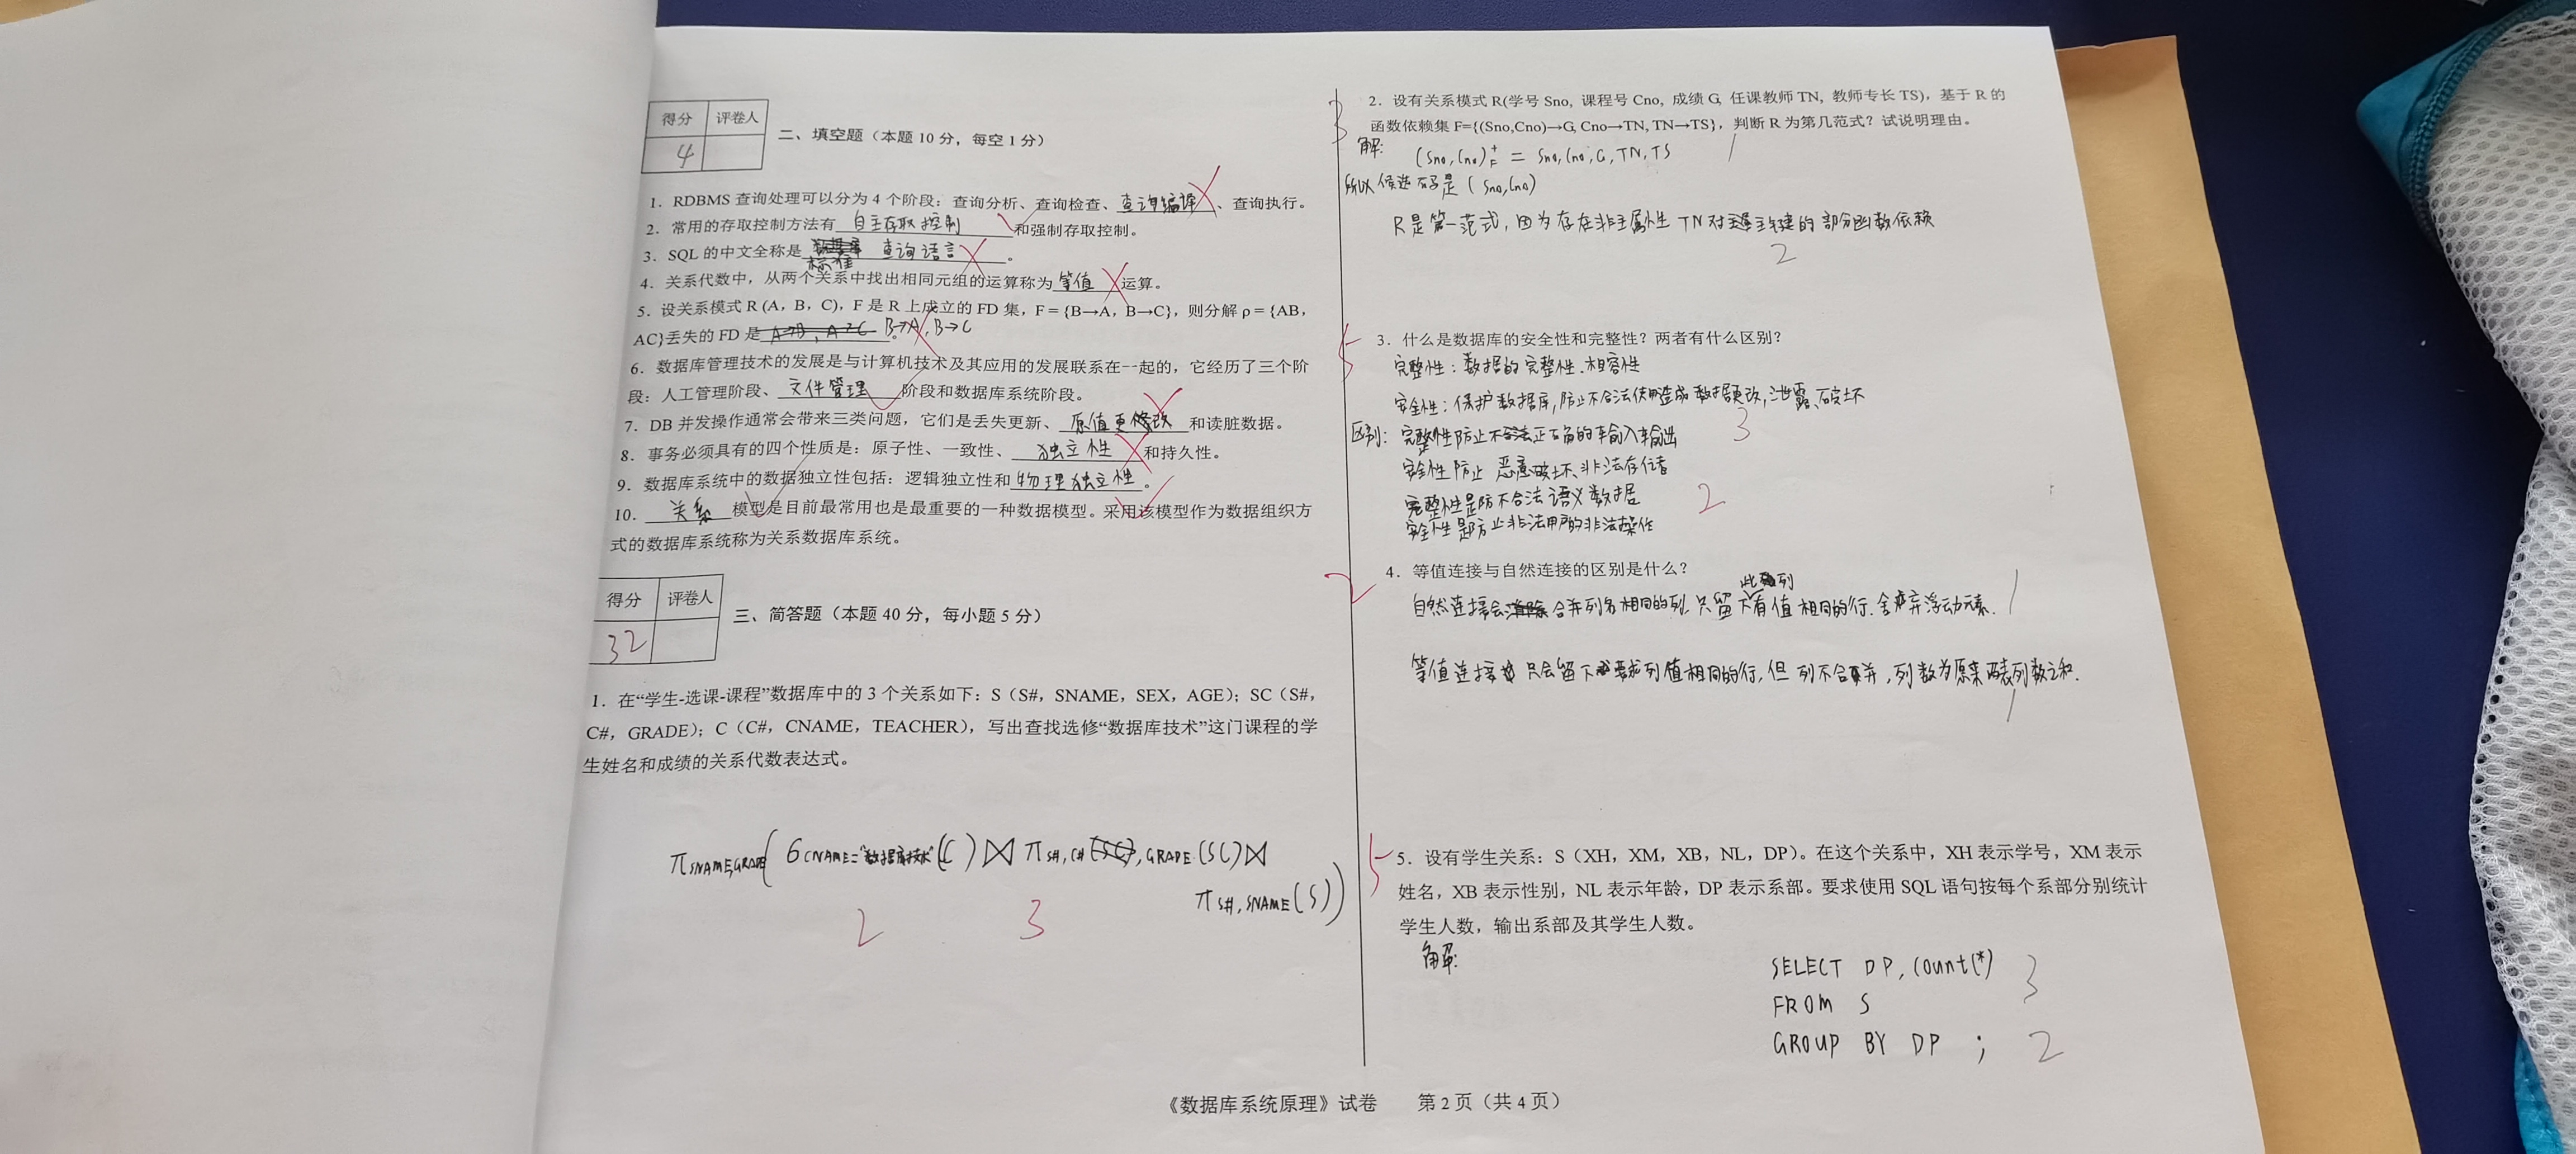 得分 评卷人
4
二、填空题（本题 10 分，每空 1 分）
1. RDBMS 查询处理可以分为 4 个阶段：查询分析、查询检查、查询编译、查询执行。
2. 常用的存取控制方法有 自主存取控制 和强制存取控制。
3. SQL 的中文全称是 标准 查询语言 。
4. 关系代数中，从两个关系中找出相同元组的运算称为 等值 运算。
5. 设关系模式 R (A，B，C)，F 是 R 上成立的 FD 集，F = {B→A，B→C}，则分解 ρ = {AB，
AC}丢失的 FD 是 A→B, A→C 。B→A, B→C
6. 数据库管理技术的发展是与计算机技术及其应用的发展联系在一起的，它经历了三个阶
段：人工管理阶段、 文件管理 阶段和数据库系统阶段。
7. DB 并发操作通常会带来三类问题，它们是丢失更新、 原值更修改 和读脏数据。
8. 事务必须具有的四个性质是：原子性、一致性、 独立性 和持久性。
9. 数据库系统中的数据独立性包括：逻辑独立性和 物理独立性 。
10. 关系 模型是目前最常用也是最重要的一种数据模型。采用该模型作为数据组织方
式的数据库系统称为关系数据库系统。
得分 评卷人
32
三、简答题（本题 40 分，每小题 5 分）
1. 在“学生-选课-课程”数据库中的 3 个关系如下：S（S#，SNAME，SEX，AGE）；SC（S#，
C#，GRADE）；C（C#，CNAME，TEACHER），写出查找选修“数据库技术”这门课程的学
生姓名和成绩的关系代数表达式。
π SNAME,GRADE ( σ CNAME="数据库技术" (C) ⋈ π S#, C# (SC), GRADE (SC) ⋈
π S#, SNAME (S))
2 3
3
2. 设有关系模式 R(学号 Sno, 课程号 Cno, 成绩 G, 任课教师 TN, 教师专长 TS)，基于 R 的
函数依赖集 F={(Sno,Cno)→G, Cno→TN, TN→TS}，判断 R 为第几范式？试说明理由。
解: (Sno,Cno)⁺F = Sno,Cno,G,TN,TS 1
所以候选码是 (Sno,Cno)
R是第一范式, 因为存在非主属性 TN对主键的部分函数依赖
2
5
3. 什么是数据库的安全性和完整性？两者有什么区别？
完整性: 数据的完整性、相容性
安全性: 保护数据库,防止不合法使用造成数据更改,泄露、破坏
3
区别: 完整性防止不合法正确的输入输出
安全性防止 恶意破坏、非法存储者
完整性是防不合法语义数据 2
安全性是防止非法用户的非法操作
2
4. 等值连接与自然连接的区别是什么？
自然连接会合并列名相同的列.只留下此列有值相同的行.舍弃浮动元素. 1
等值连接 只会留下要求列值相同的行,但 列不合并,列数为原来两表列数之和.
1
5
5. 设有学生关系：S（XH，XM，XB，NL，DP）。在这个关系中，XH 表示学号，XM 表示
姓名，XB 表示性别，NL 表示年龄，DP 表示系部。要求使用 SQL 语句按每个系部分别统计
学生人数，输出系部及其学生人数。
解:
SELECT DP, Count(*) 3
FROM S
GROUP BY DP ; 2
《数据库系统原理》试卷 第 2 页（共 4 页）